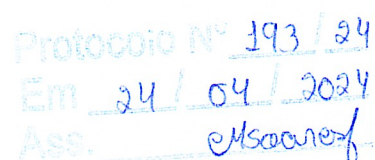 Protocolo Nº 193 / 24
Em 24 / 04 / 2024
Ass.